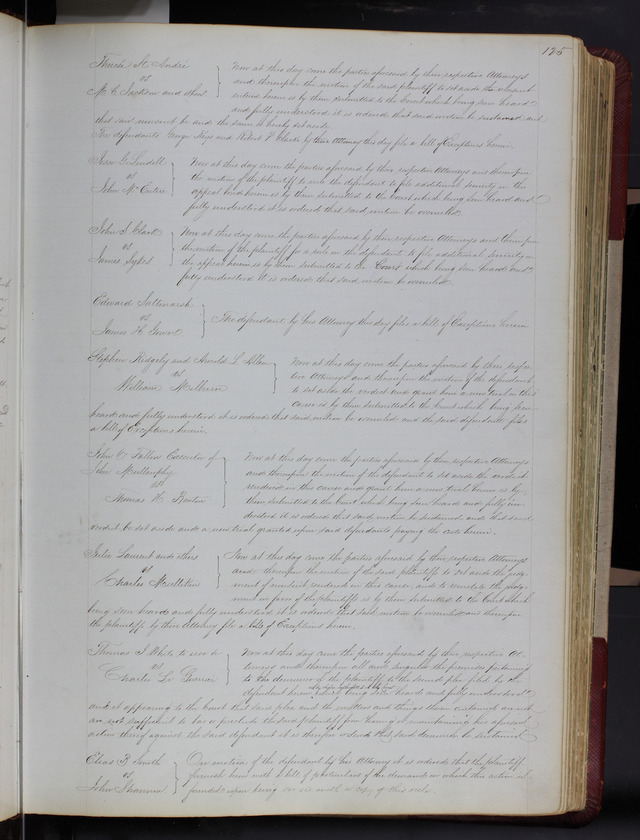 125
Now at this day came the parties aforesaid by their respective Attorneys
vs and thereupon the motion of the said plaintiff to set aside the
M. C. Jackson and others herein is by them submitted to the Court which being seen heard
and fully understood it is ordered that said motion be sustained and
that said be and the same is hereby set aside.
The defendants George and Robert P. Clark by their Attorney this day file a bill of Exceptions herein.
Jesse G. Lindell Now at this day came the parties aforesaid by their respective Attorneys and thereupon
vs the motion of the plaintiff to rule the defendant to file additional security in the
John appeal bond herein is by them submitted to the Court which being seen heard and
fully understood it is ordered that said motion be overruled.
John S. Clark Now at this day came the parties aforesaid by their respective Attorneys and thereupon
vs the motion of the plaintiff for a rule on the defendant to file additional security in
James Sykes the appeal herein is by them submitted to the Court which being seen heard and
fully understood it is ordered that said motion be overruled.
Edward Saltmarsh
vs The defendant by his Attorney this day files a bill of Exceptions herein
James H.
Stephen Ridgely and Arnold L. Allen Now at this day came the parties aforesaid by their respec-
vs tive Attorneys and thereupon the motion of the defendant
William Milburn to set aside the verdict and grant him a new trial in this
cause is by them submitted to the Court which being seen
heard and fully understood it is ordered that said motion be overruled and the said defendant files
a bill of Exceptions herein.
John Executor of Now at this day came the parties aforesaid by their respective Attorneys
John Mullanphy and thereupon the motion of the defendant to set aside the verdict
vs rendered in this cause and grant him a new trial herein is by
Thomas H. Benton them submitted to the Court which being seen heard and fully un-
derstood it is ordered that said motion be sustained and that said
verdict be set aside and a new trial granted upon said defendants paying the costs herein.
Julie Laurent and others Now at this day came the parties aforesaid by their respective Attorneys
vs and thereupon the motion of the said plaintiffs to set aside the judg-
Charles ment of nonsuit rendered in this cause and to
ment in favor of the plaintiffs is by them submitted to the Court which
being seen heard and fully understood it is ordered that said motion be overruled and thereupon
the plaintiffs by their Attorney file a bill of Exceptions herein.
Thomas J. White to use &c Now at this day came the parties aforesaid by their respective At-
vs torneys and thereupon all and singular the premises pertaining
Charles to the demurrer of the plaintiff to the second plea filed by the
defendant herein being seen heard and fully understood
and it appearing to the Court that said plea and the matters and things therein contained are
not sufficient to bar or preclude the said plaintiff from having and maintaining his aforesaid
action thereof against the said defendant it is therefore ordered that said demurrer be sustained.
Elias B. Smith On motion of the defendant by his Attorney it is ordered that the plaintiff
vs furnish him with a bill of particulars of the demand on which this action is
John Shannon founded upon being with a copy of this rule.